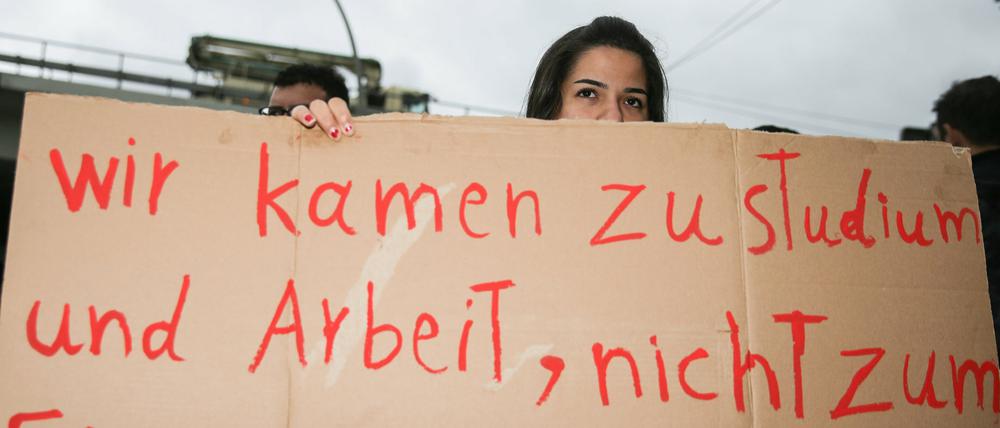 wir kamen zu studium
und Arbeit, nicht zum